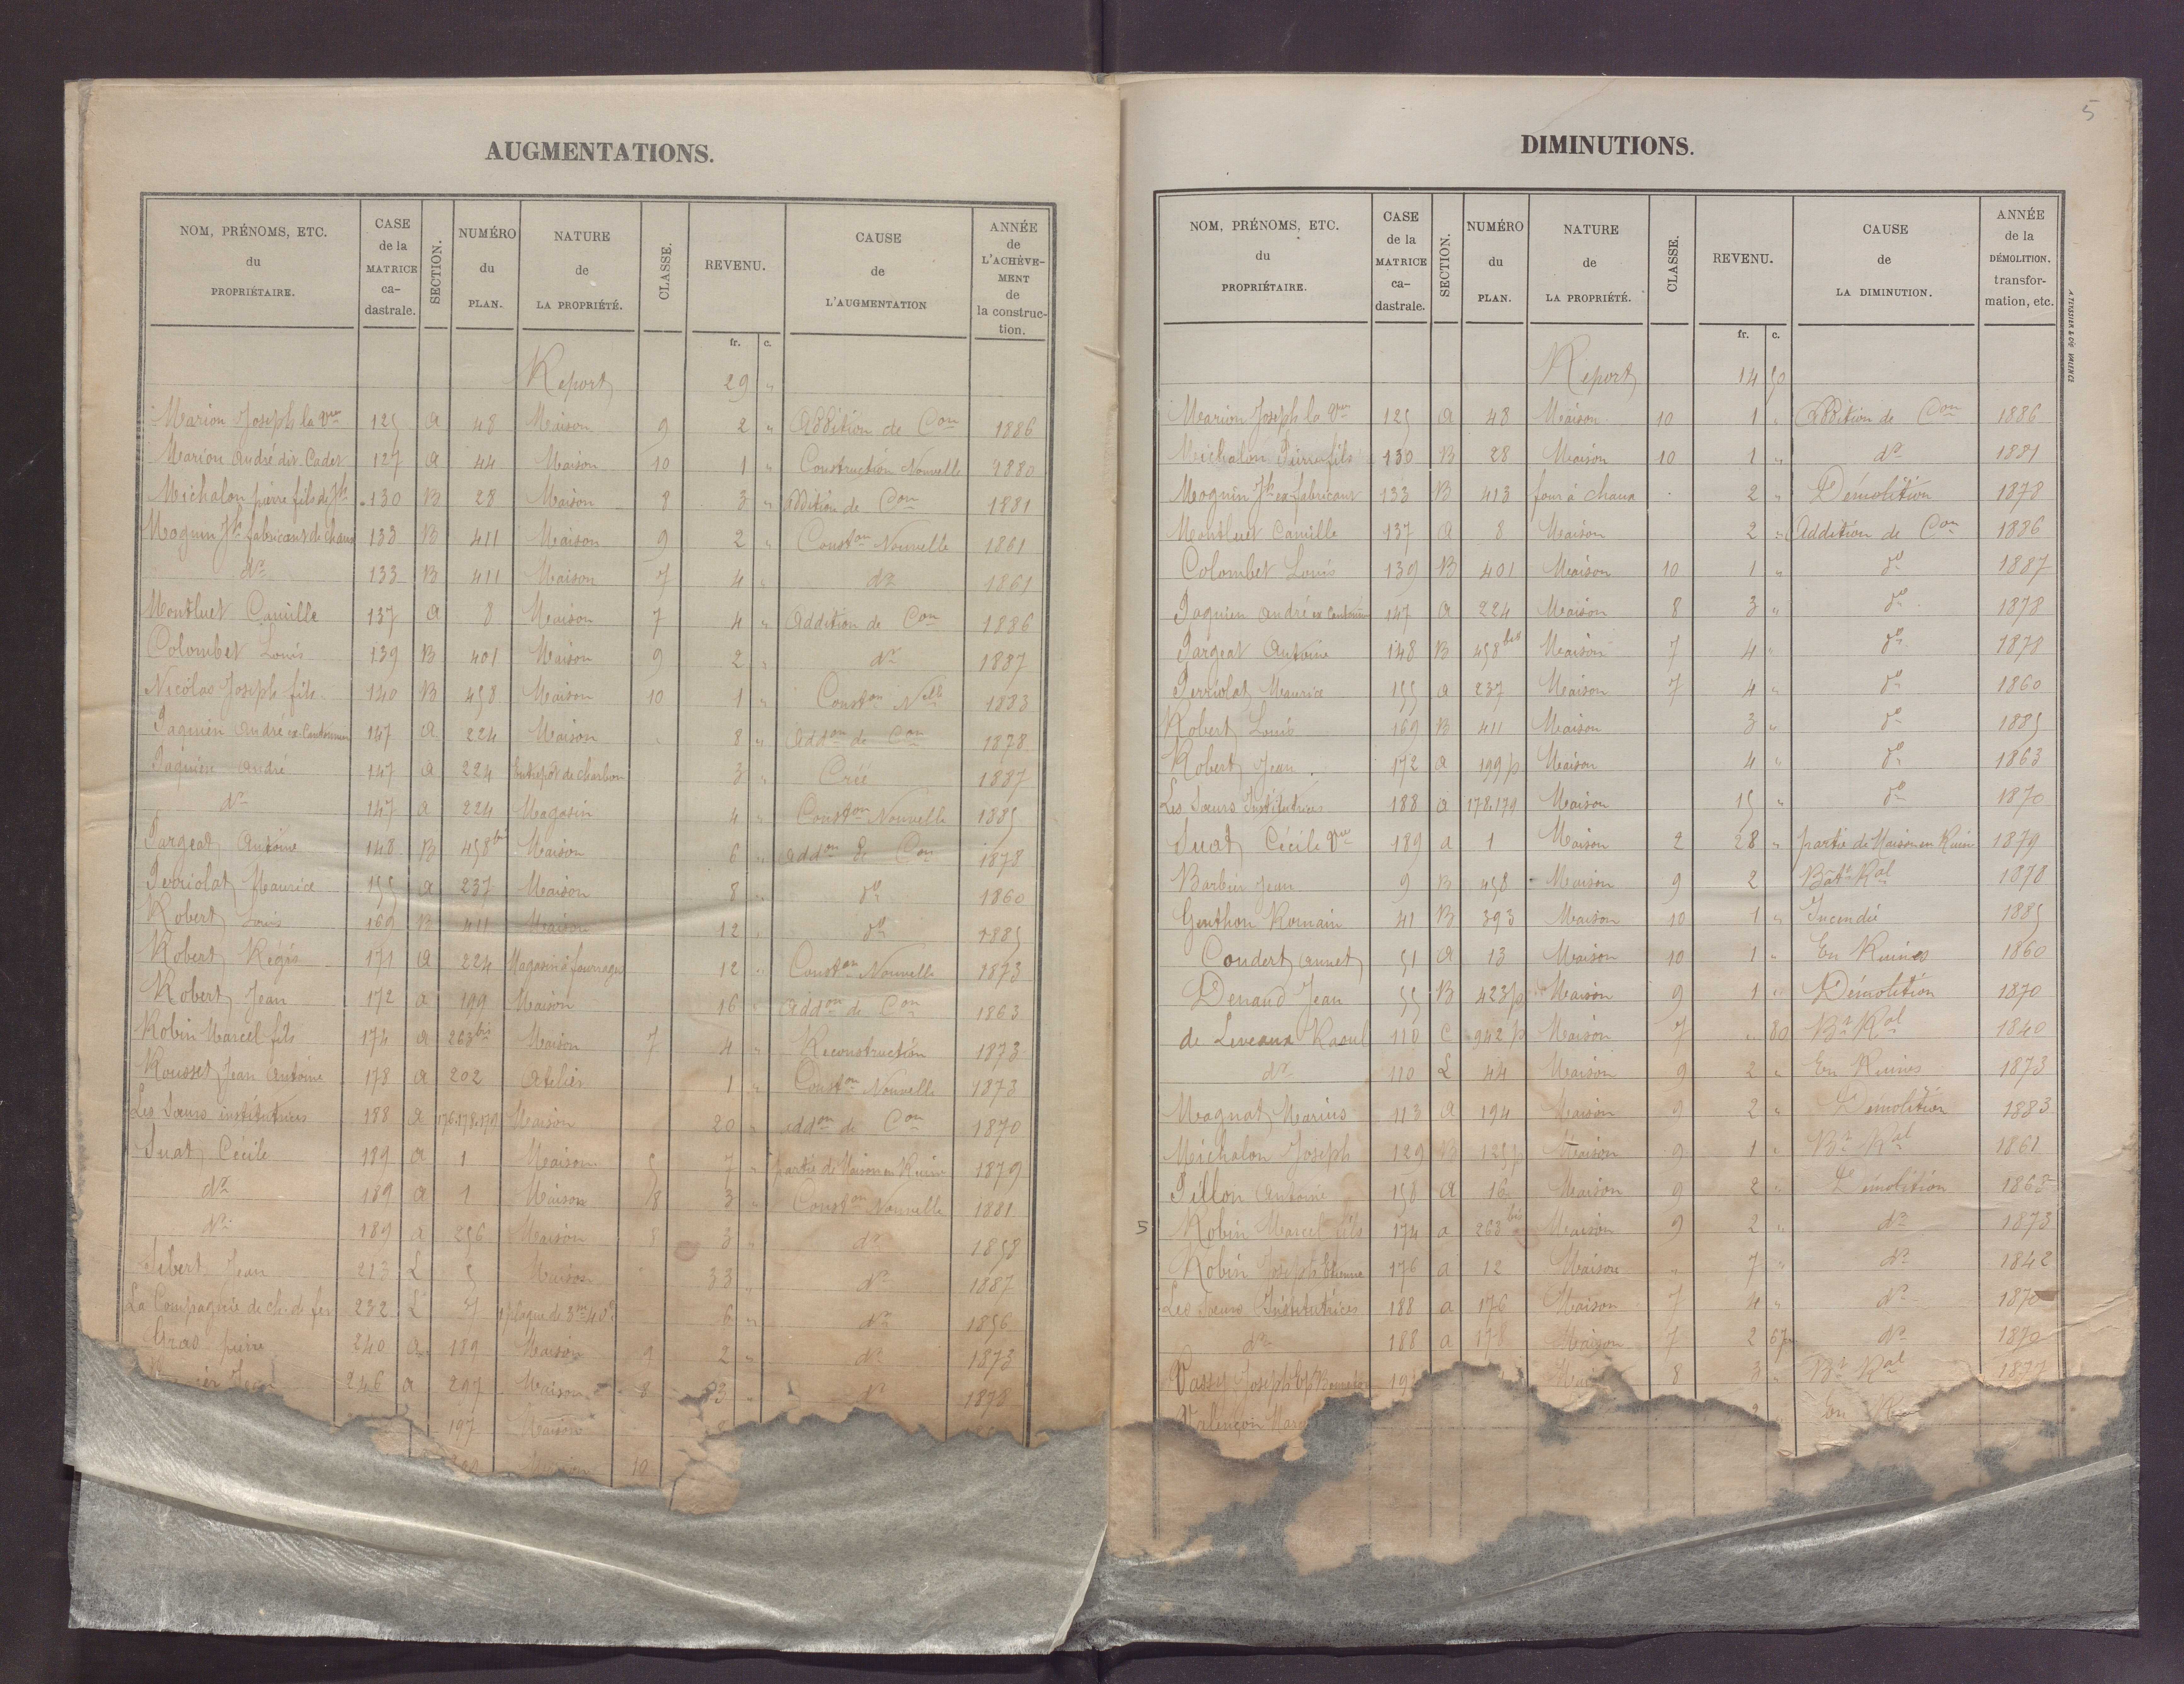 AUGMENTATIONS.
NOM, PRÉNOMS, ETC. du PROPRIÉTAIRE. CASE de la MATRICE ca- dastrale. SECTION. NUMÉRO du PLAN. NATURE de LA PROPRIÉTÉ. CLASSE. REVENU. CAUSE de L'AUGMENTATION ANNÉE de L'ACHÈVE- MENT de la construc- tion.
fr. c.
Report 29 "
Marion Joseph la Vve 125 a 48 Maison 9 2 " Addition de Con 1886
Marion André dit Cadet 127 a 44 Maison 10 1 " Construction Nouvelle 1880
Michalon pierre fils de Jh 130 B 28 Maison 8 3 " Addition de Con 1881
Moguin Jh fabricant de chaux 133 B 411 Maison 9 2 " Conston Nouvelle 1861
do 133 B 411 Maison 7 4 " do 1861
Montluet Camille 137 a 8 Maison 7 4 " Addition de Con 1886
Colombet Louis 139 B 401 Maison 9 2 " do 1887
Nicolas Joseph fils 140 B 458 Maison 10 1 " Conston Nelle 1883
Paquien André ex Cantonnier 147 a 224 Maison 8 " Addon de Con 1878
Paquien André 147 a 224 Entrepôt de charbon 3 " Créé 1887
do 147 a 224 Magasin 4 " Conston Nouvelle 1885
Pargeat Antoine 148 B 458 bis Maison 6 " Addon de Con 1878
Perriolat Maurice 155 a 237 Maison 8 " do 1860
Robert Louis 169 B 411 Maison 12 " do 1885
Robert Régis 171 a 224 Magasin à fourrages 12 " Conston Nouvelle 1873
Robert Jean 172 a 199 Maison 16 " Addon de Con 1863
Robin Marcel fils 174 a 263 bis Maison 7 4 " Reconstruction 1873
Rousset Jean Antoine 178 a 202 Atelier 1 " Conston Nouvelle 1873
Les Sœurs institutrices 188 a 176.178.179 Maison 20 " addon de Con 1870
Suat Cécile 189 a 1 Maison 5 7 " partie de Maison en Ruine 1879
do 189 a 1 Maison 8 3 " Conston Nouvelle 1881
do 189 a 256 Maison 8 3 " do 1858
Sibert Jean 213 L 5 Maison 33 " do 1887
La Compagnie de ch. de fer 232 L 7 1 plaque de 3m40 6 " do 1856
Gras pierre 240 a 189 Maison 9 2 " do 1873
Jean 246 a 297 Maison 8 3 " do 1878
197 Maison
Maison 10
5
DIMINUTIONS.
NOM, PRÉNOMS, ETC. du PROPRIÉTAIRE. CASE de la MATRICE ca- dastrale. SECTION. NUMÉRO du PLAN. NATURE de LA PROPRIÉTÉ. CLASSE. REVENU. CAUSE de LA DIMINUTION. ANNÉE de la DÉMOLITION, transfor- mation, etc.
fr. c.
Report 14 50
Marion Joseph la Vve 125 a 48 Maison 10 1 " Addition de Con 1886
Michalon Pierre fils 130 B 28 Maison 10 1 " do 1881
Moguin Jh ex fabricant 133 B 413 four à chaux 2 " Démolition 1878
Montluet Camille 137 a 8 Maison 2 " Addition de Con 1886
Colombet Louis 139 B 401 Maison 10 1 " do 1887
Paquien André ex Cantonnier 147 a 224 Maison 8 3 " do 1878
Pargeat Antoine 148 B 458 bis Maison 7 4 " do 1878
Perriolat Maurice 155 a 237 Maison 7 4 " do 1860
Robert Louis 169 B 411 Maison 3 " do 1885
Robert Jean 172 a 199 p Maison 4 " do 1863
Les Sœurs Institutrices 188 a 178.179 Maison 15 " do 1870
Suat Cécile Vve 189 a 1 Maison 2 28 " partie de Maison en Ruine 1879
Barbier Jean 9 B 458 Maison 9 2 Bât Ral 1878
Genthon Romain 41 B 393 Maison 10 1 " Incendié 1885
Coudert Annet 51 a 13 Maison 10 1 " En Ruines 1860
Denaud Jean 55 B 423 p Maison 9 1 " Démolition 1870
de Leveaux Raoul 110 C 942 p Maison 7 " 80 Bt Ral 1840
do 110 L 44 Maison 9 2 " En Ruines 1873
Magnat Marius 113 a 194 Maison 9 2 " Démolition 1883
Michalon Joseph 129 B 125 p Maison 9 1 " Bt Ral 1861
Pillon Antoine 158 a 16 Maison 9 2 " Démolition 1862
5 Robin Marcel fils 174 a 263 bis Maison 9 2 " do 1873
Robin Joseph Etienne 176 a 12 Maison " 7 " do 1842
Les Sœurs Institutrices 188 a 176 Maison 7 4 " do 1870
do 188 a 178 Maison 7 2 67 do 1870
Vassy Joseph 8 3 " Bt Ral 1877
Valençon
A. TEISSIER & CIE VALENCE